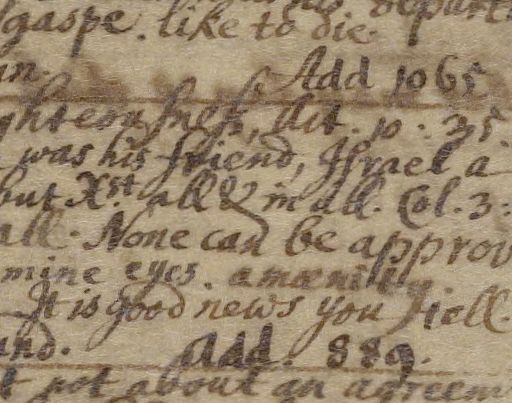 depart
gaspe. like to die.
Add 1065
ghteousness, Act. 10: 35.
was his friend, Israel a
but Xst. all & in all. Col. 3:
all. None can be approv
mine eyes. amœnity.
It is good news you tell.
and. Add. 889.
t not about an agreem